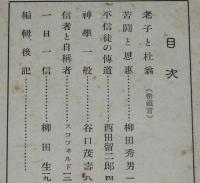 目次
老子と杜翁（巻頭言）
苦闘と恩惠……柳田秀男…一
平信徒の傳道……西田留二郎…四
神學一般……谷口茂壽…九
信者と自稱者……スコフヰルド…二
一日一信……柳田生…九
編輯後記